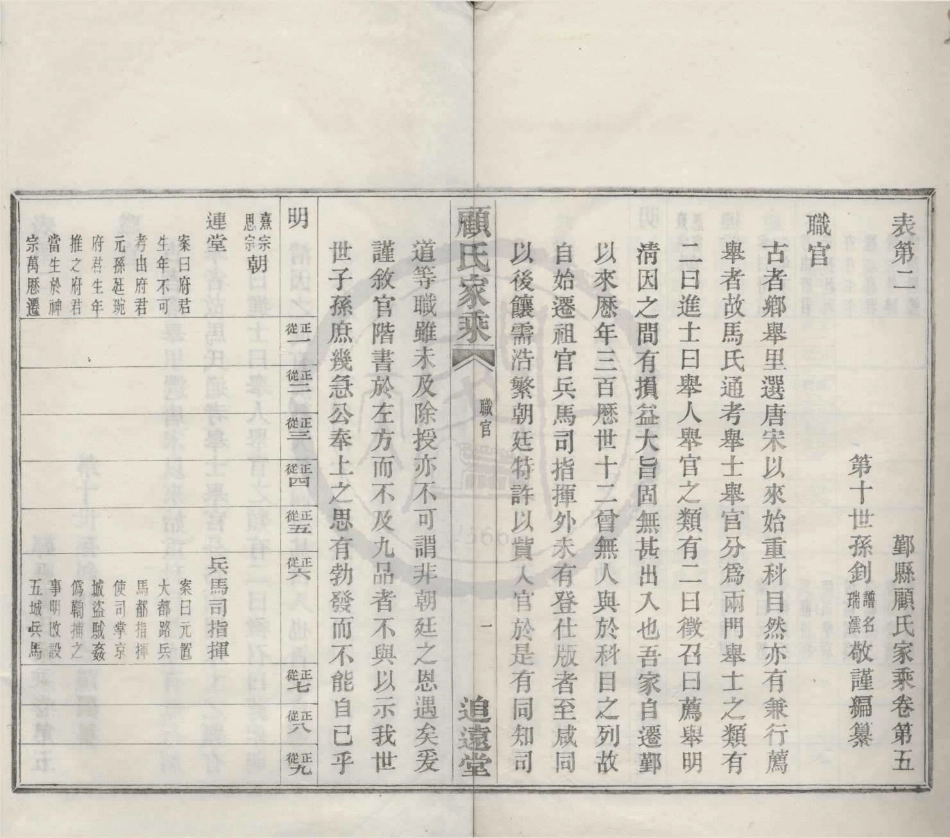 表第二　鄞縣顧氏家乘卷第五
第十世孫釗譜名瑞澐敬謹編纂
職官
古者鄉舉里選唐宋以來始重科目然亦有兼行薦
舉者故馬氏通考舉士舉官分爲兩門舉士之類有
二曰進士曰舉人舉官之類有二曰徵召曰薦舉明
清因之間有損益大旨固無甚出入也吾家自遷鄞
以來歷年三百歷世十二曾無人與於科目之列故
自始遷祖官兵馬司指揮外未有登仕版者至咸同
以後饟需浩繁朝廷特許以貲入官於是有同知司
顧氏家乘　職官　一　追遠堂
道等職雖未及除授亦不可謂非朝廷之恩遇矣爰
謹敘官階書於左方而不及九品者不與以示我世
世子孫庶幾急公奉上之思有勃發而不能自已乎
明
正一從
正二從
正三從
正四從
正五從
正六從
正七從
正八從
正九從
熹宗
思宗朝
連堂　兵馬司指揮
案曰府君
生年不可
考由府君
元孫廷琬
府君生年
推之府君
當生於神
宗萬曆遷
案曰元置
大都路兵
馬都指揮
使司掌京
城盜賊姦
僞鞫捕之
事明改設
五城兵馬